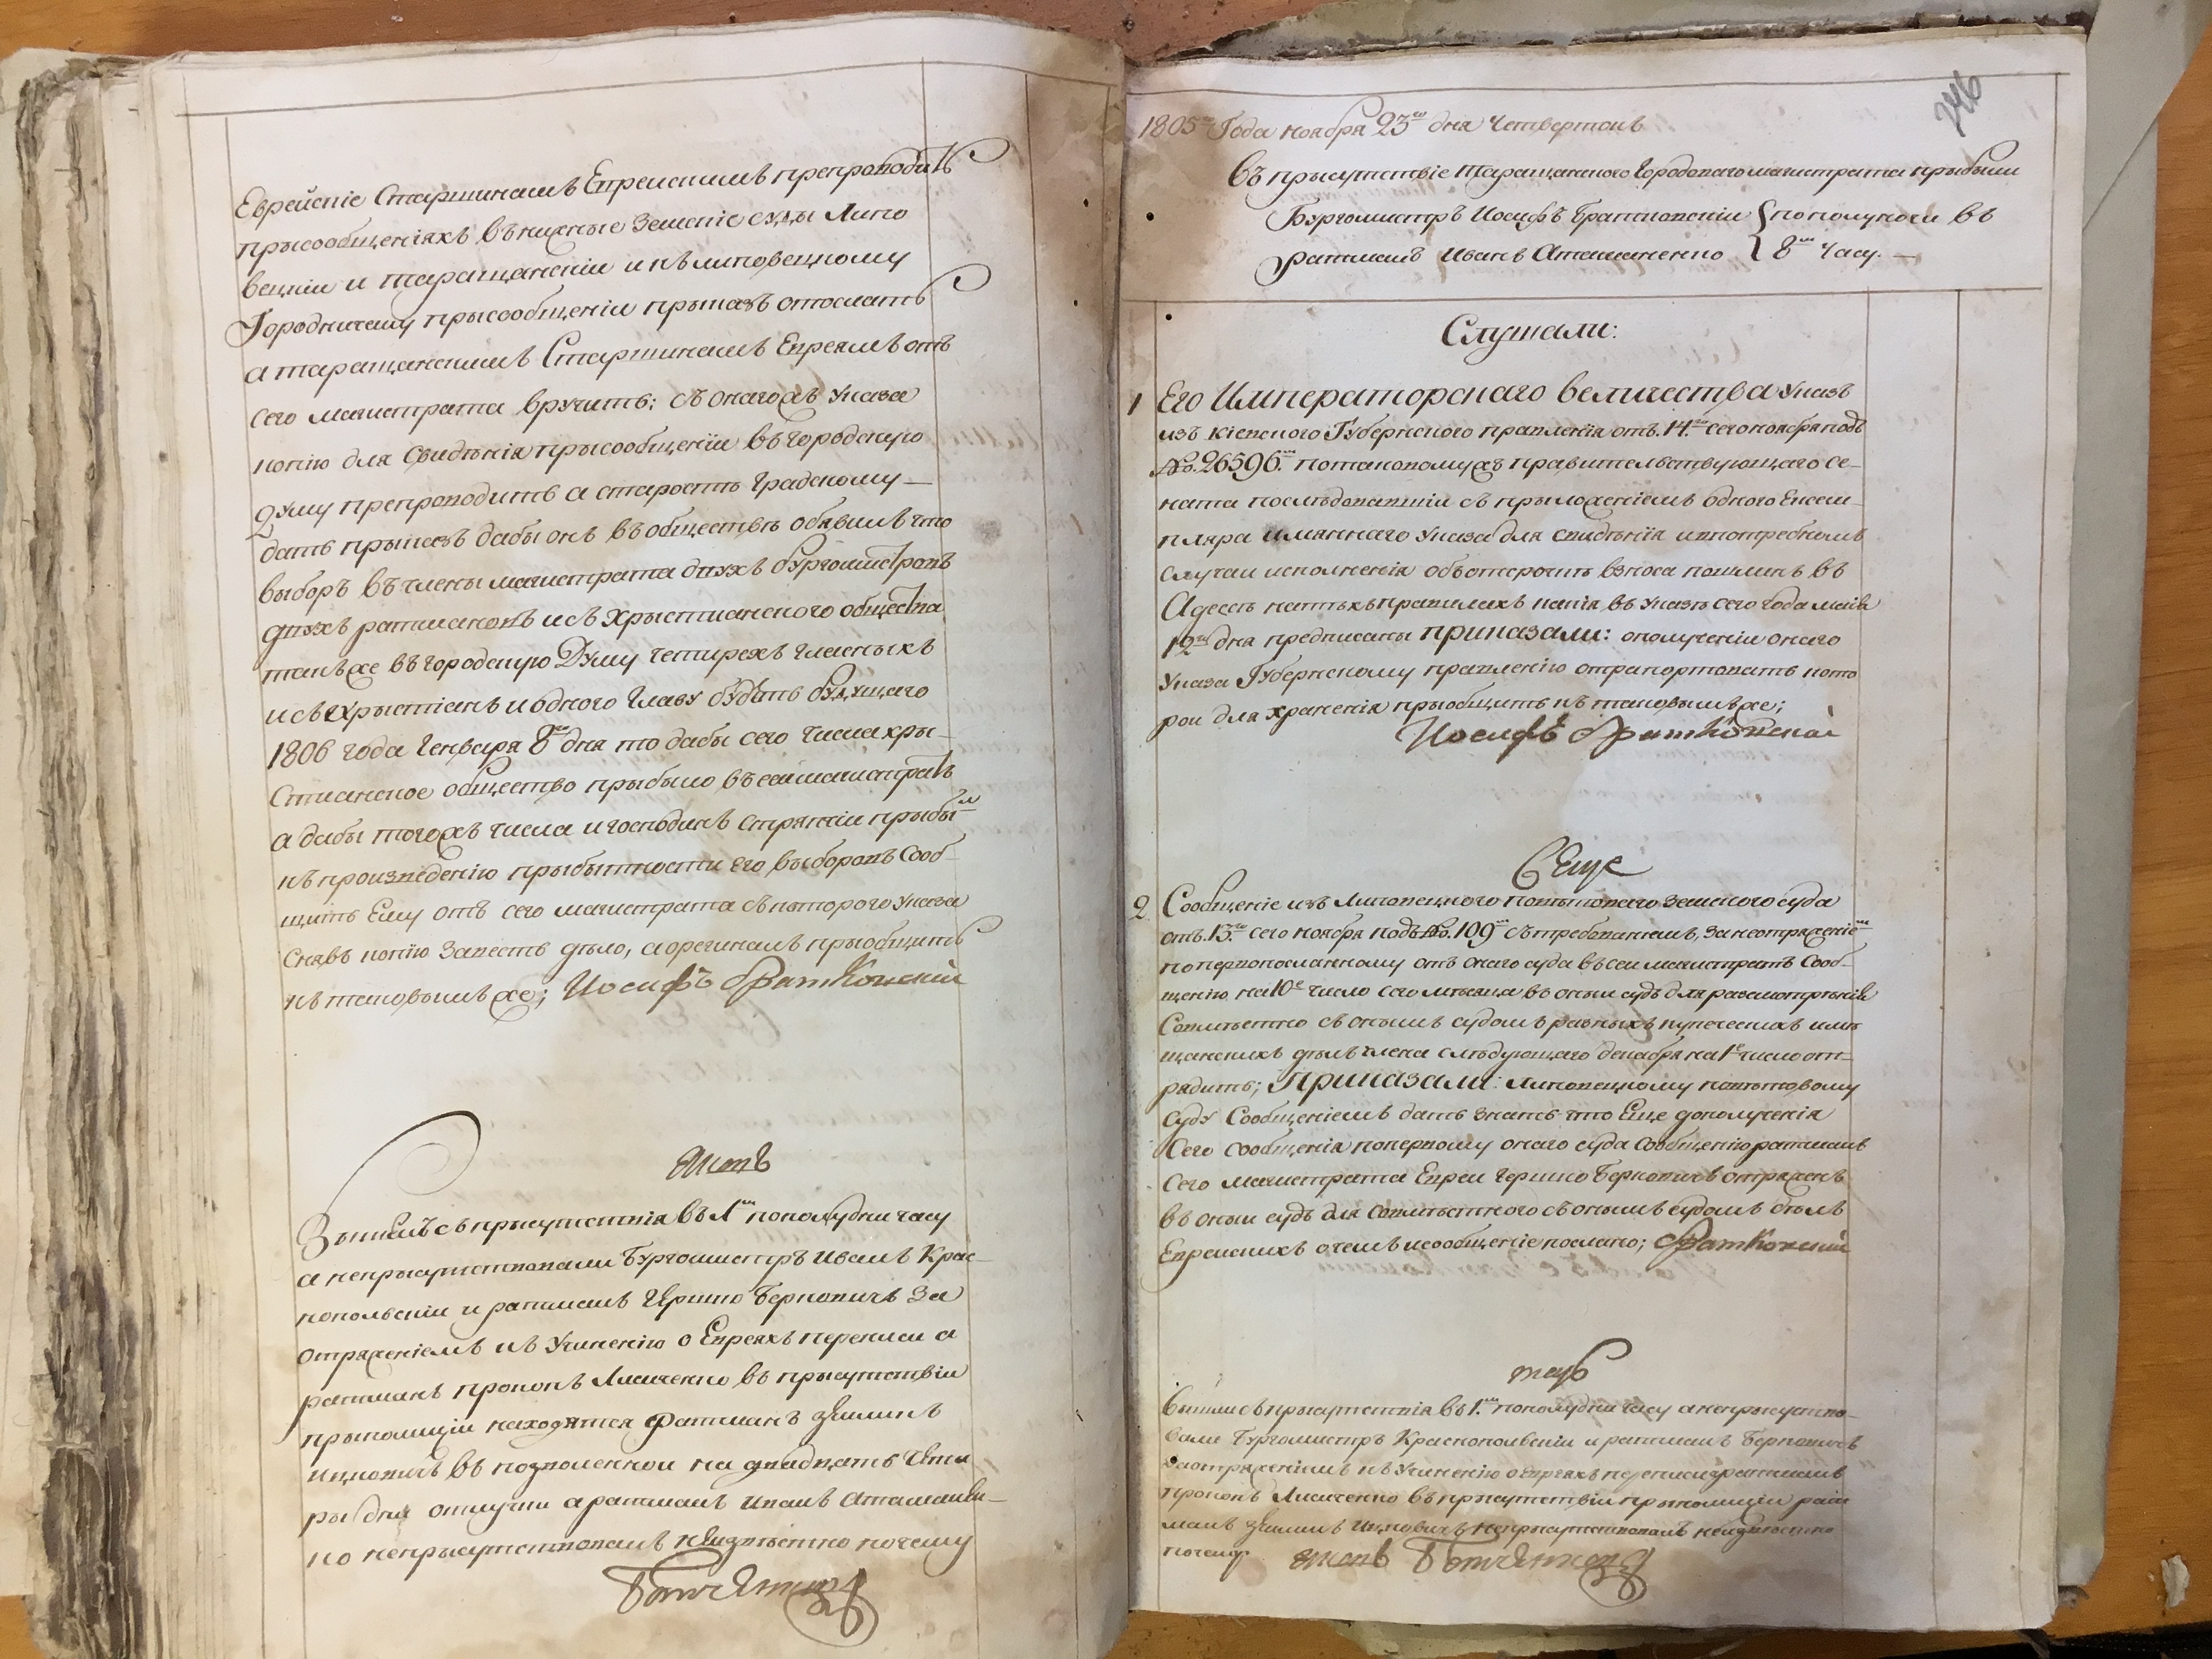 Еврейскіе Старшинамъ Еврейскимъ препроводить
прысообщеніяхъ въ нижніе земскіе суды Липо
вецкіи и таращанскіи и къ липовецкому
Городничему прысообщеніи прыказъ отослать
а таращанскимъ Старшинамъ Евреямъ отъ
сего магистрата вручить; съ онагожъ указа
копію для свидѣнія прысообщеніи въ городскую
думу препроводить а старостѣ градскому —
дать прыказъ дабы онъ въ обществѣ обявилъ что
выборъ въ члены магистрата двухъ бургомистровъ
двухъ ратмановъ и съ Хрыстианского общества
такъже въ городскую Думу четирехъ гласныхъ
и съ Хрыстіанъ и одного главу будетъ будущаго
1806 года Генваря 8го дня то дабы сего числа хры-
стианское общество прыбыло въ сеи магистратъ
а дабы тогожъ числа и господинъ стряпчіи прыбыл
къ произведенію прыбытности его выборовъ Сооб-
щить Ему отъ сего магистрата съ которого указа
снявъ копію завесть дѣло, а орегиналъ пріобщить
къ таковымъ же; Иосифъ Братковскій
Яковъ
Вышелъ съ прысутствія въ 1м пополудни часу
а неприсутствовали Бургомистръ Иванъ Крас-
копольскіи и ратманъ Гершко Берковичъ за
отряженіемъ къ Учиненію о Евреяхъ переписи а
ратманъ прокопъ Лисаченко въ прысутствіи
прыполиціи находятся ратманъ Зѣлинъ
Ицковичъ въ позволенной на двадцать четы
ры дня отлучки а ратманъ Иванъ Атаманен-
ко неприсутствовалъ неизвѣстно почему
1805го Года ноября 23го дня Четвертокъ
Въ прысутствіе Таращанского Городового магистрата прыбыли
Бургомистръ Иосифъ Братковскіи } по полуночи въ
ратманъ Иванъ Атаманенко } 8м часу. —
Слушали:
1 Его Императорскаго величества указъ
изъ кіевского Губернского правленія отъ 14го сего ноября подъ
№ 26596м потаковомужъ правительствующаго се-
ната послѣдовавшіи съ прыложеніемъ одного Екзем-
пляра имяннаго указа для свидѣнія и впотребномъ
случаи исполненія объ отсрочить взноса пошлинъ въ
Адессѣ натѣхъ правилахъ какія въ указѣ сего года маія
12го дня предписаны приказали: ополученіи онаго
указа Губернскому правленію отрапортовать кото
рои для храненія прыобщить къ таковымъже;
Иосифъ Братковскій
Еще
2. Сообщеніе изъ Липовецкого повѣтоваго земского суда
отъ 13го сего ноября подъ № 109м съ требованіемъ, за неотряженіемъ
по первопосланному отъ онаго суда въ сеи магистратъ Сооб-
щенію на 10е число сего мѣсяца въ оныи судъ для разсмотрѣнія
Совмѣстно съ онымъ судомъ разныхъ купеческихъ и мѣ
щанскихъ дѣлъ члена слѣдующаго декабря на 1е число от-
рядить; Приказали: Липовецкому повѣтовому
Суду Сообщеніемъ дать знать что Еще дополученія
Сего сообщенія поперному онаго суда сообщенію ратманъ
Сего магистрата Евреи Гершко Берковичъ отряженъ
въ оныи судъ для совмѣстного съ онымъ судомъ дѣлъ
Еврейскихъ о чемъ и сообщеніе послано; Братковскій
Вышли съ прысутствія въ 1м пополудни часу а неприсутство-
вали Бургомистръ Краскопольскіи и ратманъ Берковичъ
заотряженіемъ къ Учиненію о Евреяхъ переписи ратманъ
прокопъ Лисаченко въ прысутствіи прыполиціи рат
манъ Зѣлинъ Ицковичъ неприсутствовалъ неизвѣстно
почему